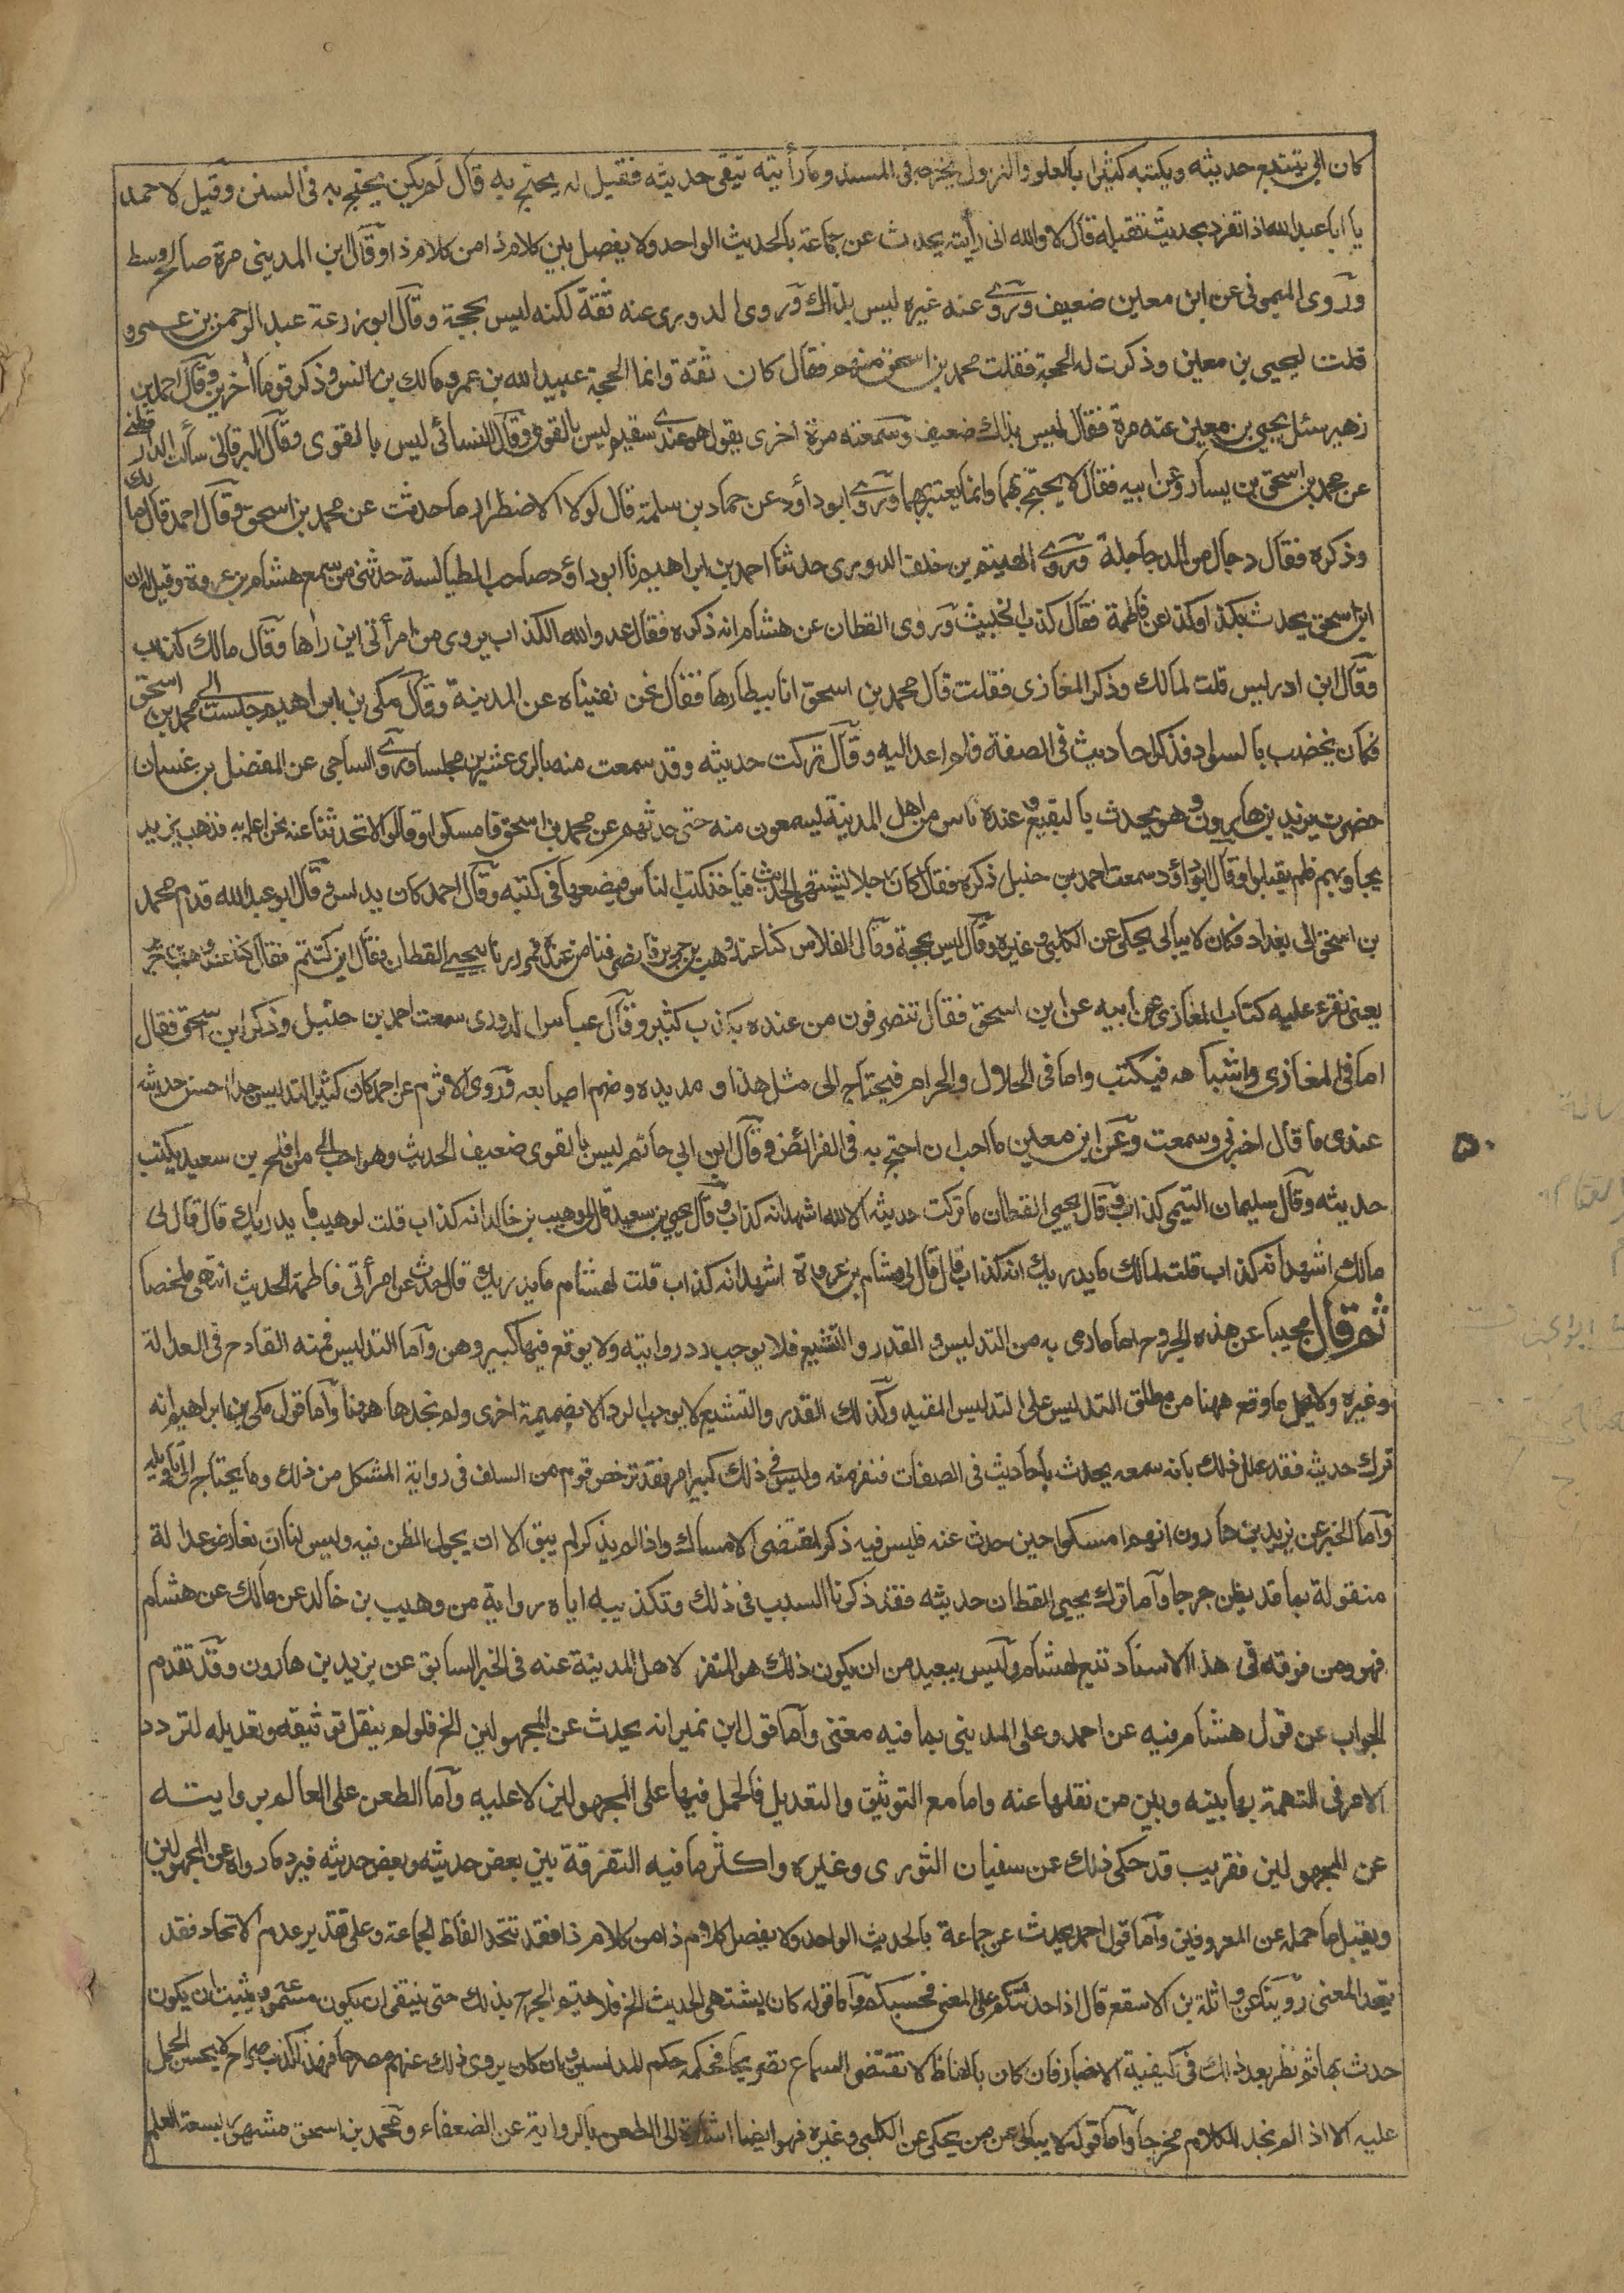 كان ابي يتتبع حديثه ويكتبه كثيرا بالعلو والنزول يخرجه في المسند وما رأيته يتقي حديثه فقيل له يحتج به قال لم يكن يحتج به في السنن وقيل لاحمد
يا ابا عبد الله اذا تفرد بحديث تقبله قال لا والله اني رأيته يحدث عن جماعة بالحديث الواحد ولا يفصل بين كلام ذا من كلام ذا وقال ابن المديني مرة صالح وسط
وروى الميموني عن ابن معين ضعيف وروى عنه غيره ليس بذاك وروى الدوري عنه ثقة لكنه ليس بحجة وقال ابو زرعة عبد الرحمن بن عمرو
قلت ليحيى بن معين وذكرت له الحجة فقلت محمد بن اسحق منهم فقال كان ثقة وانما الحجة عبيد الله بن عمر ومالك بن انس وذكر قوما آخرين وقال احمد بن
زهير سئل يحيى بن معين عنه مرة فقال ليس بذاك ضعيف وسمعته مرة اخرى يقول هو عندي سقيم ليس بالقوي وقال النسائي ليس بالقوي وقال البرقاني سألت الدارقطني
عن محمد بن اسحق بن يسار وعن ابيه فقال لا يحتج بهما وانما يعتبر بهما وروى ابو داود عن حماد بن سلمة قال لولا الاضطرار ما حدثت عن محمد بن اسحق وقال احمد قال مالك
وذكره فقال دجال من الدجاجلة وروى الهيثم بن خلف الدوري حدثنا احمد بن ابراهيم نا ابو داود صاحب الطيالسة حدثني من سمع هشام بن عروة وقيل له ان
ابن اسحق يحدث بكذا وكذا عن فاطمة فقال كذب الخبيث وروى القطان عن هشام انه ذكره فقال عدو الله الكذاب يروي عن امرأتي اين رأها وقال مالك كذاب
وقال ابن ادريس قلت لمالك وذكر المغازي فقلت قال محمد بن اسحق انا بيطارها فقال نحن نفيناه عن المدينة وقال مكي بن ابراهيم جلست الى محمد بن اسحق
فكان يخضب بالسواد فذكر احاديث في الصفة فلم اعد اليه وقال تركت حديثه وقد سمعت منه بالري عشرين مجلسا وروى الساجي عن المفضل بن غسان
حضرت يزيد بن هارون وهو يحدث بالبقيع وعنده ناس من اهل المدينة يسمعون منه حتى حدثهم عن محمد بن اسحق فامسكوا وقالوا لا تحدثنا عنه نحن اعلم به فذهب يزيد
يحاولهم فلم يقبلوا وقال ابو داود سمعت احمد بن حنبل ذكره فقال كان رجلا يشتهي الحديث فيأخذ كتب الناس فيضعها في كتبه وقال احمد كان يدلس وقال ابو عبد الله قدم محمد
بن اسحق الى بغداد فكان لا يبالي يحكي عن الكلبي وغيره وقال ليس بحجة وقال الفلاس كنا عند وهب بن جرير فانصرفنا من عنده فمررنا بيحيى القطان فقال اين كنتم فقلنا كنا عند وهب بن جرير
يعني نقرء عليه كتاب المغازي عن ابيه عن ابن اسحق فقال تنصرفون من عنده بكذب كثير وقال عباس الدوري سمعت احمد بن حنبل وذكر ابن اسحق فقال
اما في المغازي واشباهه فيكتب واما في الحلال والحرام فيحتاج الى مثل هذا ومد يده وضم اصابعه وروى الاثرم عن احمد كان كثير التدليس جدا احسن حديثه
عندي ما قال اخبرني وسمعت وعن ابن معين ما احب ان احتج به في الفرائض وقال ابن ابي حاتم ليس بالقوي ضعيف الحديث وهو احب الي من افلح بن سعيد يكتب
حديثه وقال سليمان التيمي كذاب وقال يحيى القطان ما تركت حديثه الا لله اشهد انه كذاب وقال يحيى بن سعيد قال لي وهيب بن خالد انه كذاب قلت لوهيب ما يدريك قال قال لي
مالك اشهد انه كذاب قلت لمالك ما يدريك انه كذاب قال قال لي هشام بن عروة اشهد انه كذاب قلت لهشام ما يدريك قال حدث عن امرأتي فاطمة الحديث انتهى ملخصا
ثم قال مجيبا عن هذه الجروح اما ما رمي به من التدليس والقدر والتشيع فلا يوجب رد روايته ولا يوقع فيها كبير وهن وآما التدليس فمنه القادح في العدالة
وغيره ولا يحمل ما وقع ههنا من مطلق التدليس على التدليس المقيد وكذلك القدر والتشيع لا يوجب الرد الا بضميمة اخرى ولم نجدها ههنا وآما قول مكي بن ابراهيم انه
ترك حديثه فقد علل ذلك بانه سمعه يحدث باحاديث في الصفات فنفر منه وليس في ذلك كبير امر فقد ترخص قوم من السلف في رواية المشكل من ذلك وما يحتاج الى تأويله
وآما الخبر عن يزيد بن هارون انهم امسكوا حين حدث عنه فليس فيه ذكر لمقتضى الامساك واذا لم يذكر لم يبق الا ان يجول الظن فيه وليس لنا ان نعارض عدالة
منقولة بما قد يظن جرحا وآما ترك يحيى القطان حديثه فقد ذكرنا السبب في ذلك وتكذيبه اياه رواية من وهيب بن خالد عن مالك عن هشام
فهو ومن فوقه في هذا الاسناد تبع لهشام وليس ببعيد من ان يكون ذلك هو المنفر لاهل المدينة عنه في الخبر السابق عن يزيد بن هارون وقد تقدم
الجواب عن قول هشام فيه عن احمد وعلي المديني بما فيه مغني وآما قول ابن نمير انه يحدث عن المجهولين الخ فلو لم ينقل توثيقه وتعديله لتردد
الامر في التهمة بها بينه وبين من نقلها عنه واما مع التوثيق والتعديل فالحمل فيها على المجهولين لا عليه وآما الطعن على العالم بروايته
عن المجهولين فقريب قد حكي ذلك عن سفيان الثوري وغيره واكثر ما فيه التفرقة بين بعض حديثه وبعض حديثه فيرد ما رواه عن المجهولين
ويقبل ما حمله عن المعروفين وآما قول احمد يحدث عن جماعة بالحديث الواحد ولا يفصل كلام ذا من كلام ذا فقد تتحد الفاظ الجماعة وعلى تقدير عدم الاتحاد فقد
يتحد المعنى روينا عن واثلة بن الاسقع قال اذا حدثتكم على المعنى فحسبكم وآما قوله كان يشتهي الحديث الخ فلا يتم الجرح بذلك حتى ينتفي ان يكون مسموعه ويثبت ان يكون
حدث بها ثم نظر بعد ذلك في كيفية الاخبار فان كان بالفاظ لا تقتضي السماع تصريحا فحكمه حكم المدلسين وان كان يروي ذلك عنهم مصرحا فهذا كذب صراح لا يحسن الحمل
عليه الا اذا لم نجد للكلام مخرجا وآما قوله لا يبالي عمن يحكي عن الكلبي وغيره فهو ايضا اشارة الى الطعن بالرواية عن الضعفاء ومحمد بن اسحق مشهور بسعة العلم
٥٠